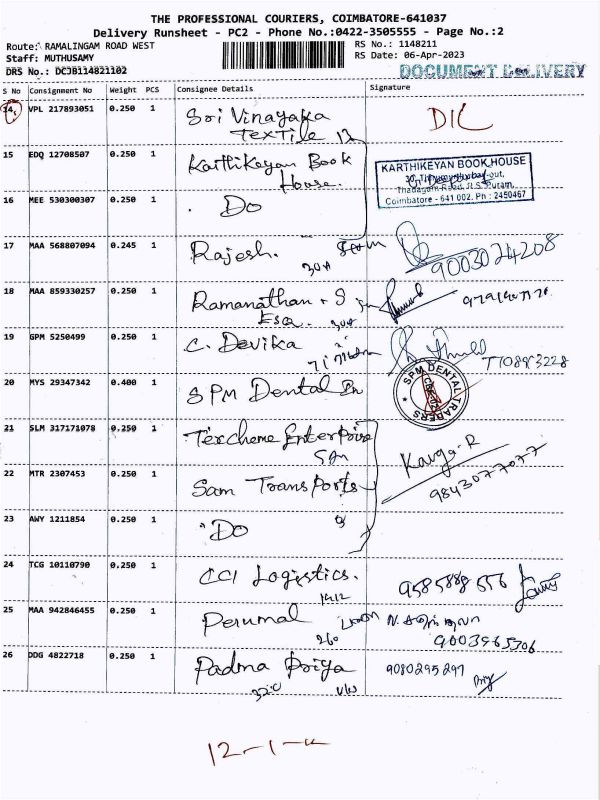 THE PROFESSIONAL COURIERS, COIMBATORE-641037
Delivery Runsheet - PC2 - Phone No.:0422-3505555 - Page No.:2
Route: RAMALINGAM ROAD WEST
RS No.: 1148211
Staff: MUTHUSAMY
RS Date: 06-Apr-2023
DRS No.: DCJB114821102
DOCUMENT DELIVERY
S No Consignment No Weight PCS Consignee Details Signature
14 VPL 217893051 0.250 1 Sri Vinayaka
Textile
15 EDQ 12708507 0.250 1 Karthikeyan Book
House.
KARTHIKEYAN BOOK HOUSE
Coimbatore - 641 002. Ph : 2450467
16 MEE 530300307 0.250 1 Do
17 MAA 568807094 0.245 1 Rajesh.
9003024208
18 MAA 859330257 0.250 1 Ramanathan . S
Esq.
19 GPM 5250499 0.250 1 C. Devika
20 MYS 29347342 0.400 1 SPM Dental
SPM DENTAL TRADERS
21 SLM 317171078 0.250 1 Texcheme Enterprise
22 MTR 2307453 0.250 1 Sam Transports
9843077077
23 AWY 1211854 0.250 1 "Do
24 TCG 10110790 0.250 1 CCI Logistics.
9585888556
25 MAA 942846455 0.250 1 Perumal
9003965306
26 DDG 4822718 0.250 1 Padma Priya
9080295297